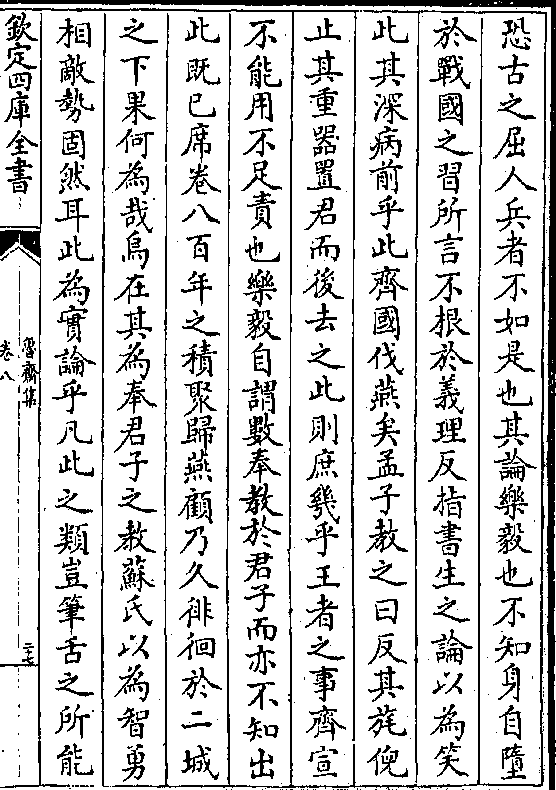 恐古之屈人兵者不如是也其論樂毅也不知身自墮
於戰國之習所言不根於義理反指書生之論以為笑
此其深病前乎此齊國伐燕矣孟子教之曰反其旄倪
止其重器置君而後去之此則庶幾乎王者之事齊宣
不能用不足責也樂毅自謂數奉教於君子而亦不知出
此既已席卷八百年之積聚歸燕顧乃久徘徊於二城
之下果何為哉烏在其為奉君子之教蘇氏以為智勇
相敵勢固然耳此為實論乎凡此之類豈筆舌之所能
欽定四庫全書
魯齋集
卷八
二十七